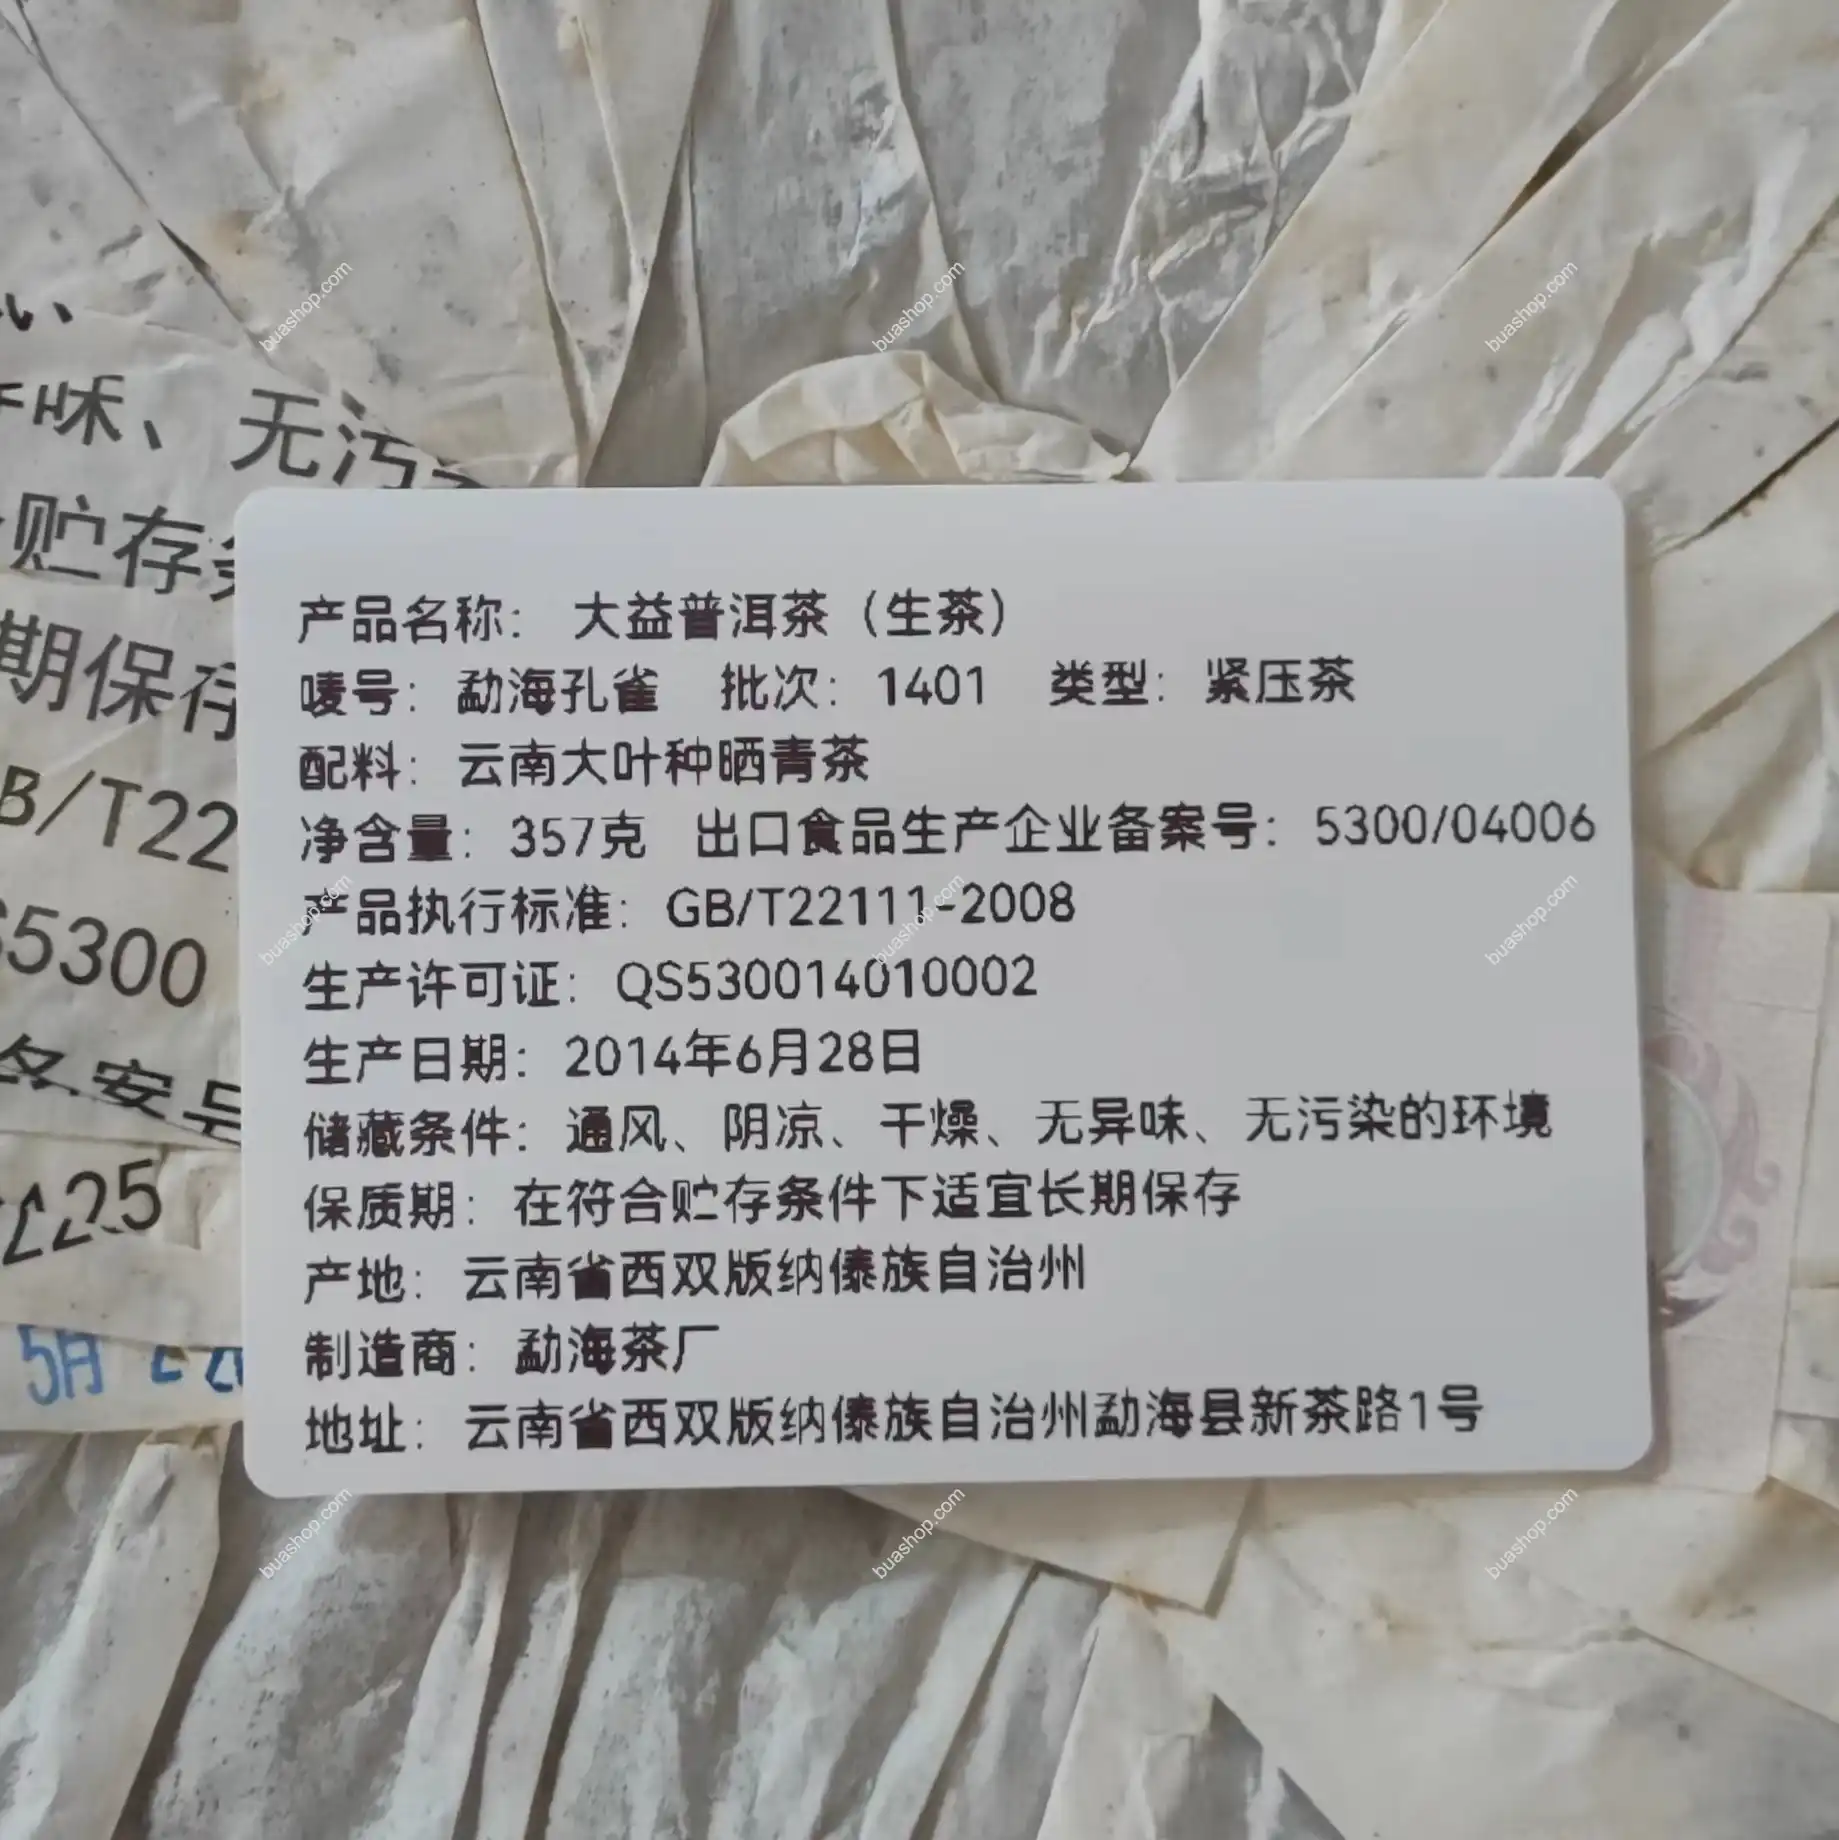 味、无污
贮存
期保存
B/T22
5300
225
5月
产品名称： 大益普洱茶（生茶）
唛号： 勐海孔雀 批次： 1401 类型： 紧压茶
配料： 云南大叶种晒青茶
净含量： 357克 出口食品生产企业备案号： 5300/04006
产品执行标准： GB/T22111-2008
生产许可证： QS530014010002
生产日期： 2014年6月28日
储藏条件： 通风、阴凉、干燥、无异味、无污染的环境
保质期： 在符合贮存条件下适宜长期保存
产地： 云南省西双版纳傣族自治州
制造商： 勐海茶厂
地址： 云南省西双版纳傣族自治州勐海县新茶路1号
buashop.com
buashop.com
buashop.com
buashop.com
buashop.com
buashop.com
buashop.com
buashop.com
buashop.com